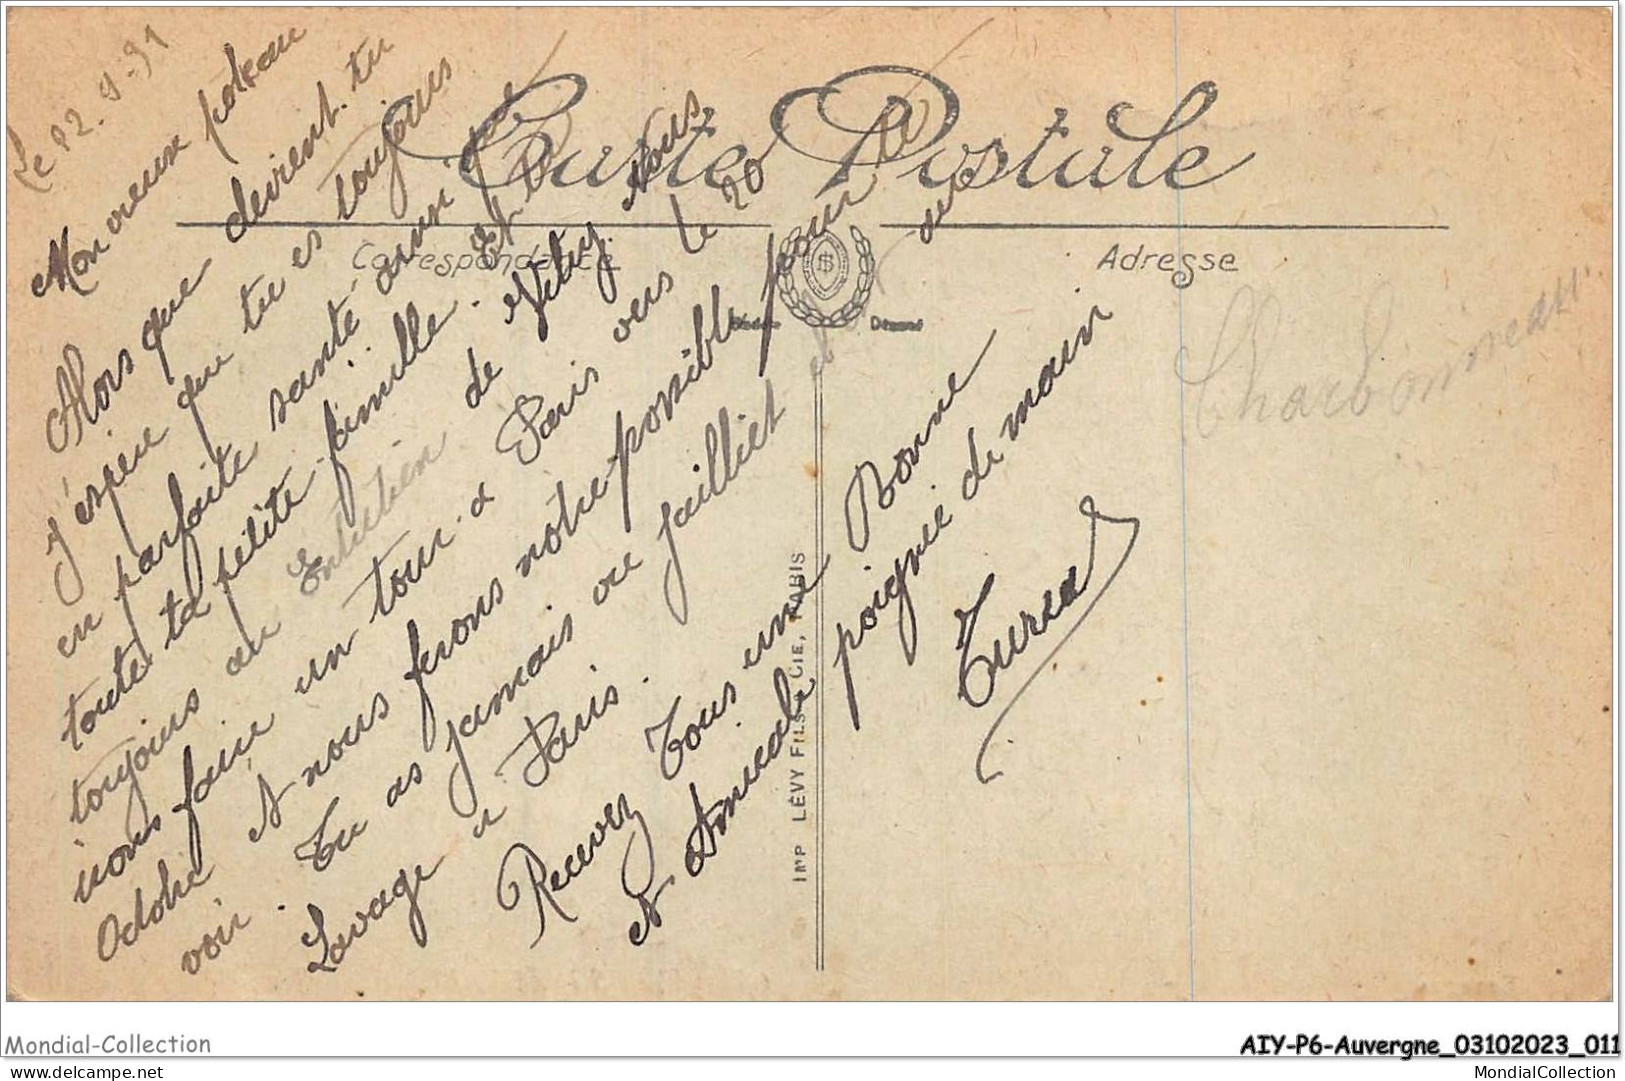 Le 22.9.31
Mon vieux poteau
Alors que devient-tu
j'espère que tu es toujours
en parfaite santé ainsi que
toute ta petite famille. Et tu
toujours au Entretien de Vitry nous
irons faire un tour a Paris vers le 20
Octobre et nous ferons notre possible pour te
voir. Tu as jamais vu Jailliet et
Lavage a Paris.
Recevez Tous une Bonne
et Amicale poignée de main
Tureau
Carte Postale
Correspondance
Adresse
Charbonneau
IMP LÉVY FILS CIE, PARIS
Mondial-Collection
AIY-P6-Auvergne_03102023_011
delcampe.net
MondialCollection